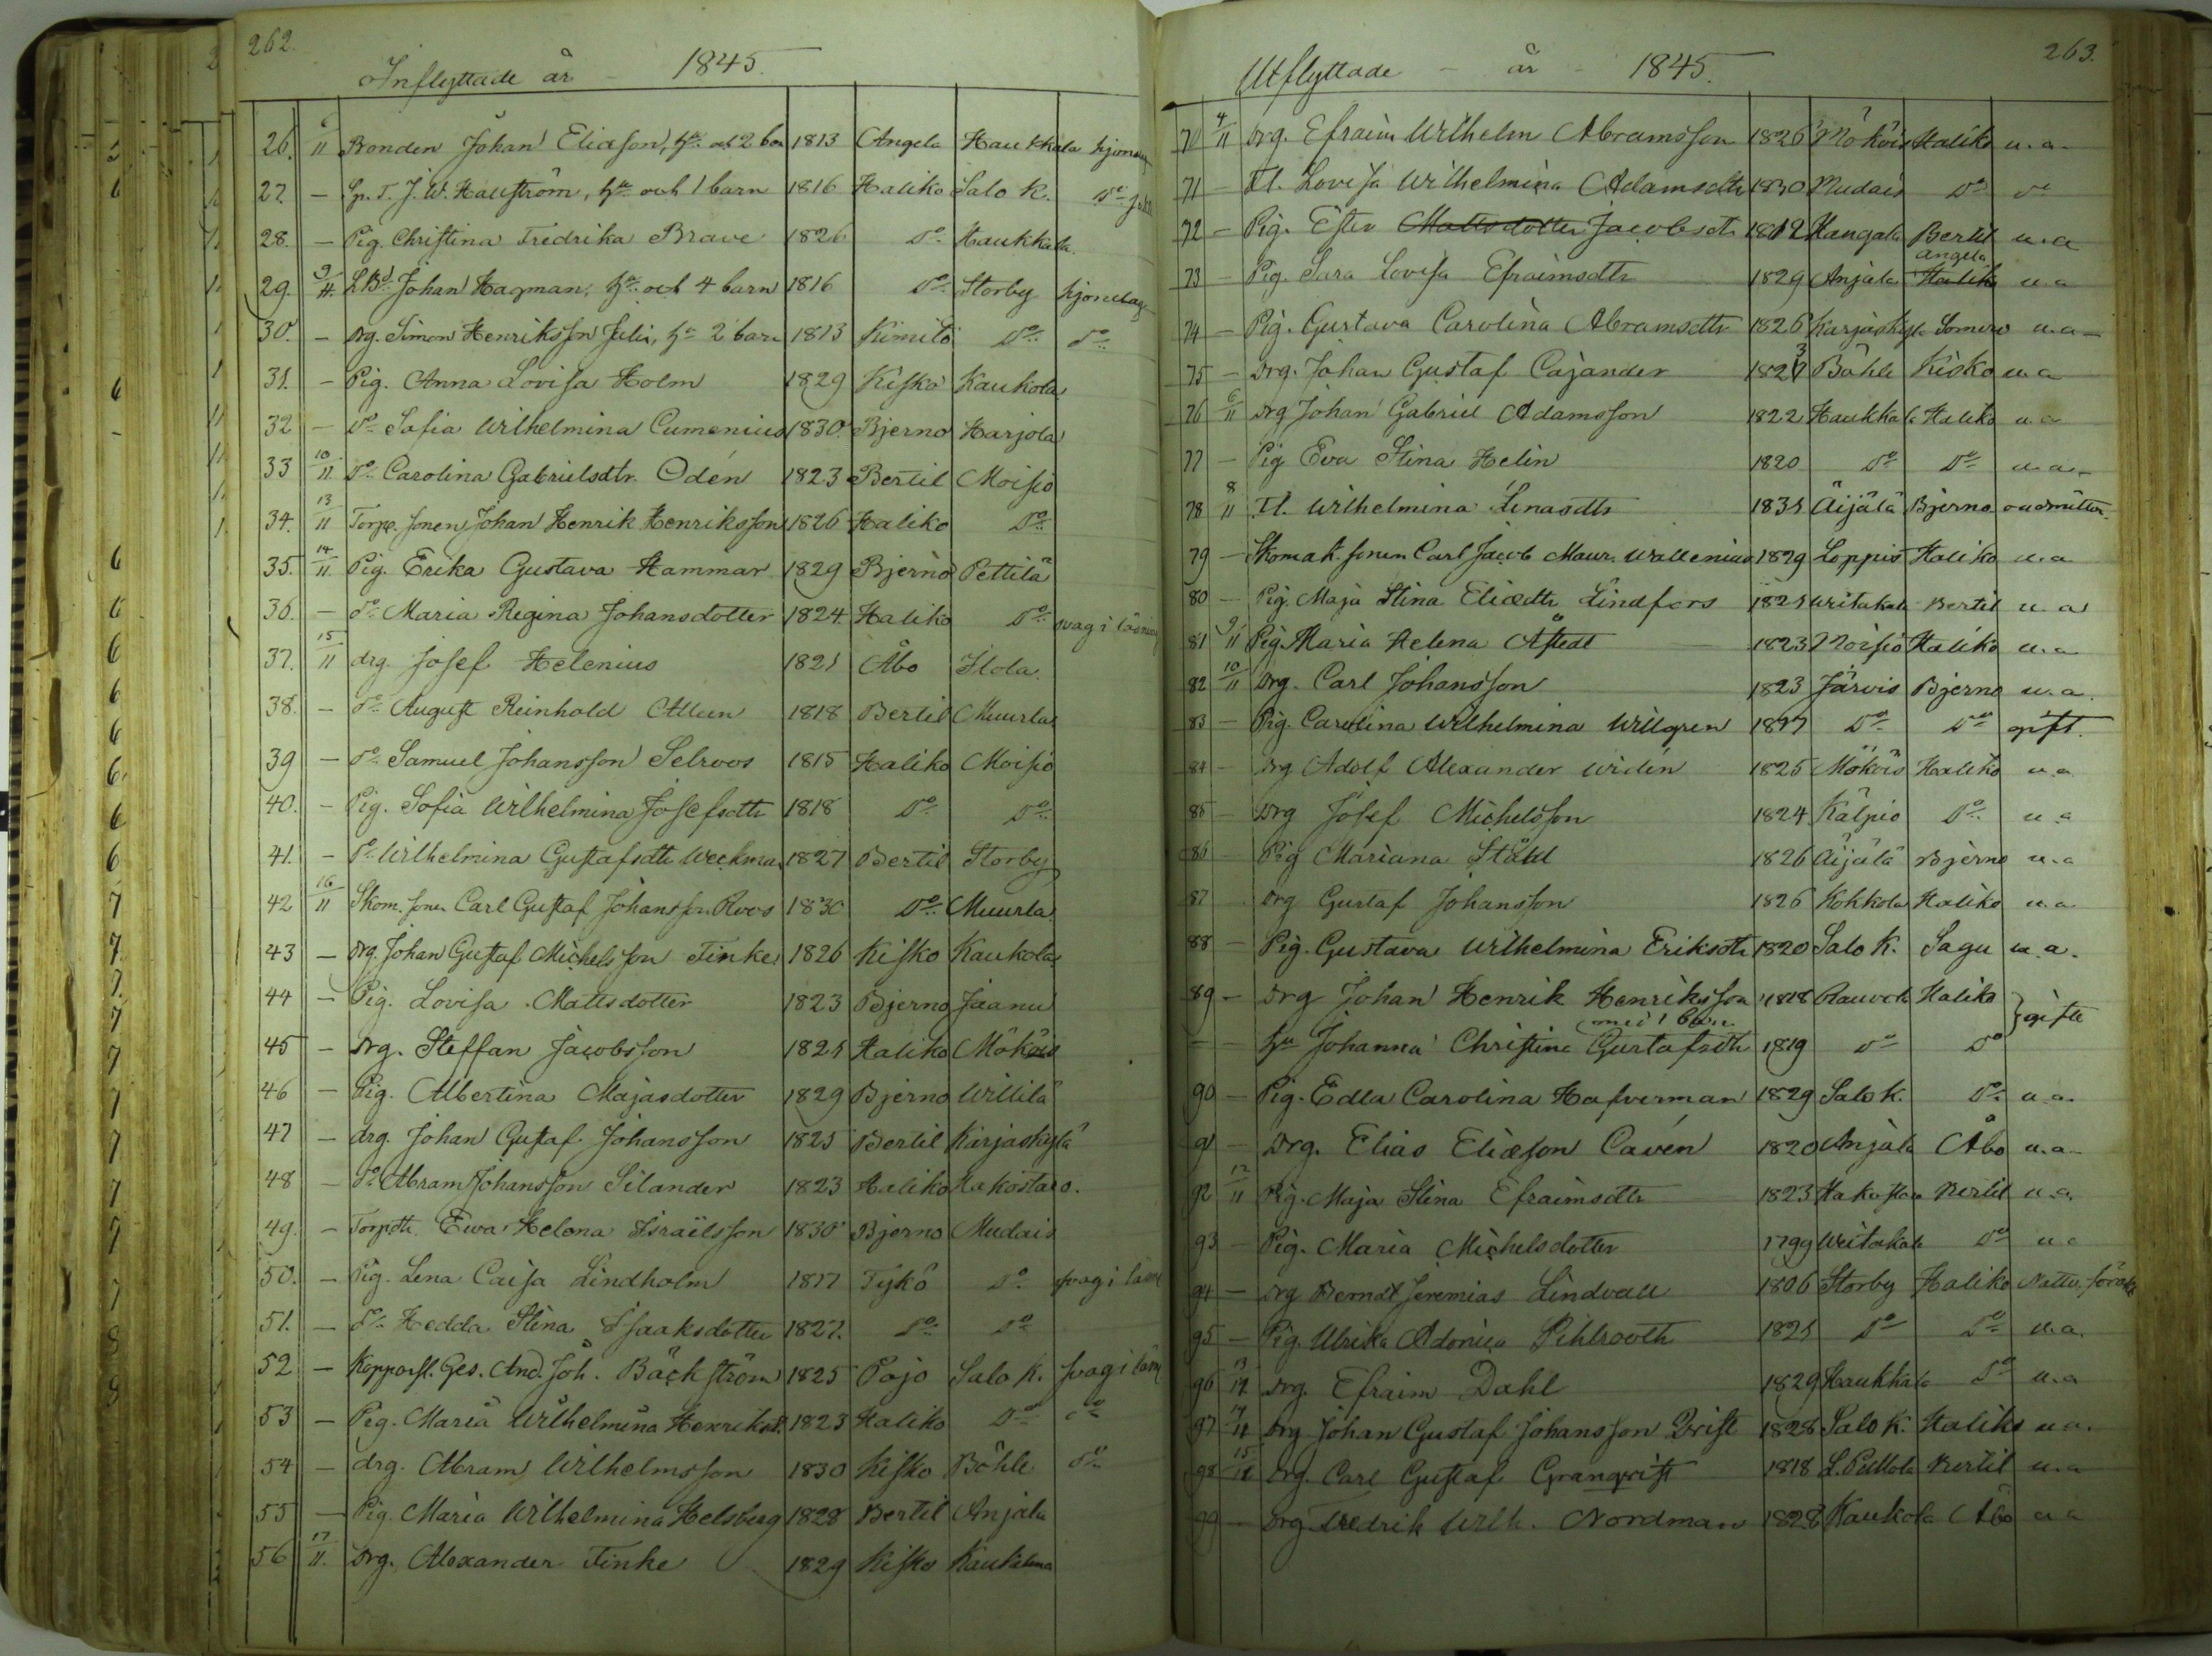 262.
Inflyttade år - 1845.
26. 6/11 Bonden Johan Eliasson, hu och 2 barn 1813 Angela Haukkala hjonelag
27. — Sp. T. J. W. Hallström, hu och 1 barn 1816 Haliko Salo K. Do
28. — Pig. Christina Fredrika Brave 1826 Do Haukkala
29. 9/11. Johan Hagman, hu och 4 barn 1816 Do Storby hjonelag
30. — Drg. Simon Henriksson Julin, hu 2 barn 1813 Kimito Do Do
31. — Pig. Anna Lovisa Holm 1829 Kisko Kaukola
32 — Do Sofia Wilhelmina Cumenius 1830. Bjerno Harjola
33 10/11. Do Carolina Gabrielsdtr. Odén 1823 Bertil Moisio
34. 13/11 Torp. sonen Johan Henrik Henriksson 1826 Haliko Do
35. 14/11. Pig. Erika Gustava Hammar 1829 Bjerno Pettilä
36. — Do Maria Regina Johansdotter 1824 Haliko Do svag i läsning
37. 15/11 drg. Josef Helenius 1821 Åbo Ilola.
38. — Do August Reinhold Alleen 1818 Bertel Muurla
39 — Do Samuel Johansson Selroos 1815 Haliko Moisio
40. — Pig. Sofia Wilhelmina Josefsdtr 1818 Do Do
41. — Do Wilhelmina Gustafsdtr Weckman 1827 Bertil Storby
42 16/11 Skom. sonen Carl Gustaf Johansson Roos 1830 Do Muurla
43 — Drg. Johan Gustaf Michelsson Finke 1826 Kisko Kaukola
44 — Pig. Lovisa Mattsdotter 1823 Bjerno Jaanu
45 — Drg. Steffan Jacobsson 1821 Haliko Mököis
46 — Pig. Albertina Majasdotter 1829 Bjerno Willilä
47 — drg. Johan Gustaf Johansson 1825 Bertil Karjaskylä
48 — Do Abram Johansson Silander 1823 Haliko Hakostaro.
49. — Torp.dtr Ewa Helena Israëlsson 1830 Bjerno Mudais
50. — Pig. Lena Caisa Lindholm 1817 Tykö Do svag i läsn
51. — Do Hedda Stina Isaaksdotter 1827. Do Do
52 — Kopparsl. Ges. And. Joh. Bäckström 1825 Pojo Salo K. svag i läsn
53 — Pig. Maria Wilhelmina Henriksd. 1823 Haliko Do Do
54 — drg. Abram Wilhelmsson 1830 Kisko Böhle Do
55 — Pig. Maria Wilhelmina Helsberg 1828 Bertil Anjala
56 17/11. Drg. Alexander Finke 1829 Kisko
263.
Utflyttade - år - 1845.
70 4/11 Drg. Efraim Wilhelm Abramsson 1826 Mököis Haliko u.a.
71 — Fl. Lovisa Wilhelmina Adamsdtr 1830 Mudais Do Do
72 — Pig. Ester Mattsdotter Jacobsdt. 1812 Kangala Bertil u.a
73 — Pig. Sara Lovisa Efraimsdtr 1829 Anjala Haliko Angela u.a
74 — Pig. Gustava Carolina Abramsdtr 1826 Karjaskyla Somero u.a
75 — Drg. Johan Gustaf Cajander 1823 Böhle Kisko u.a
76 6/11 Drg Johan Gabriel Adamsson 1822 Haukkala Haliko u.a
77 — Pig Eva Stina Helin 1820 Do Do u.a.
78 8/11 Fl. Wilhelmina Linasdtr 1831 Äijälä Bjerno oadmitter.
79 — Skomak. sonen Carl Jacob Maur. Wallenius 1829 Loppis Haliko u.a
80 — Pig. Maja Stina Eliædtr Lindfors 1821 Writakala Bertil u.a
81 9/11 Pig. Maria Helena Åstedt 1823 Moisio Haliko u.a
82 10/11 Drg. Carl Johansson 1823 Järvis Bjerno u.a.
83 — Pig. Carolina Wilhelmina Willgren 1817 Do Do gift.
84 — Drg Adolf Alexander Widén 1825 Mököis Haliko u.a
85 — Drg Josef Michelsson 1824 Kälpio Do u.a
86 — Pig Mariana Ståhl 1826 Äijälä Bjerno u.a
87 Drg Gustaf Johansson 1826 Kokkola Haliko u.a
88 — Pig. Gustava Wilhelmina Eriksdtr 1820 Salo K. Sagu u.a.
89 — Drg Johan Henrik Henriksson 1818 Rauvola Haliko
med 1 barn
— hu Johanna Christina Gustafsdtr 1819 Do Do } gifte
90 — Pig. Edla Carolina Hafverman 1829 Salo K. Do u.a.
91 — Drg. Elias Eliæson Cavén 1820 Anjala Åbo u.a
92 12/11 Pig. Maja Stina Efraimsdtr 1823 Bertil u.a.
93 — Pig. Maria Michelsdotter 1799 Do u.a
94 — Drg Berndt Jeremias Lindvall 1806 Storby Haliko Nattv. försökt
95 — Pig. Ulrika Adonica Pihlrooth 1821 Do Do u.a.
96 13/11 Drg. Efraim Dahl 1829 Haukkala Do u.a
97 14/11 Drg Johan Gustaf Johansson Qvist 1828 Salo K. Haliko u.a.
98 15/11 Drg. Carl Gustaf Granqvist 1818 L. Pullola Bertil u.a
99 — Drg Fredrik Wilh. Nordman 1828 Kaukola Åbo u.a